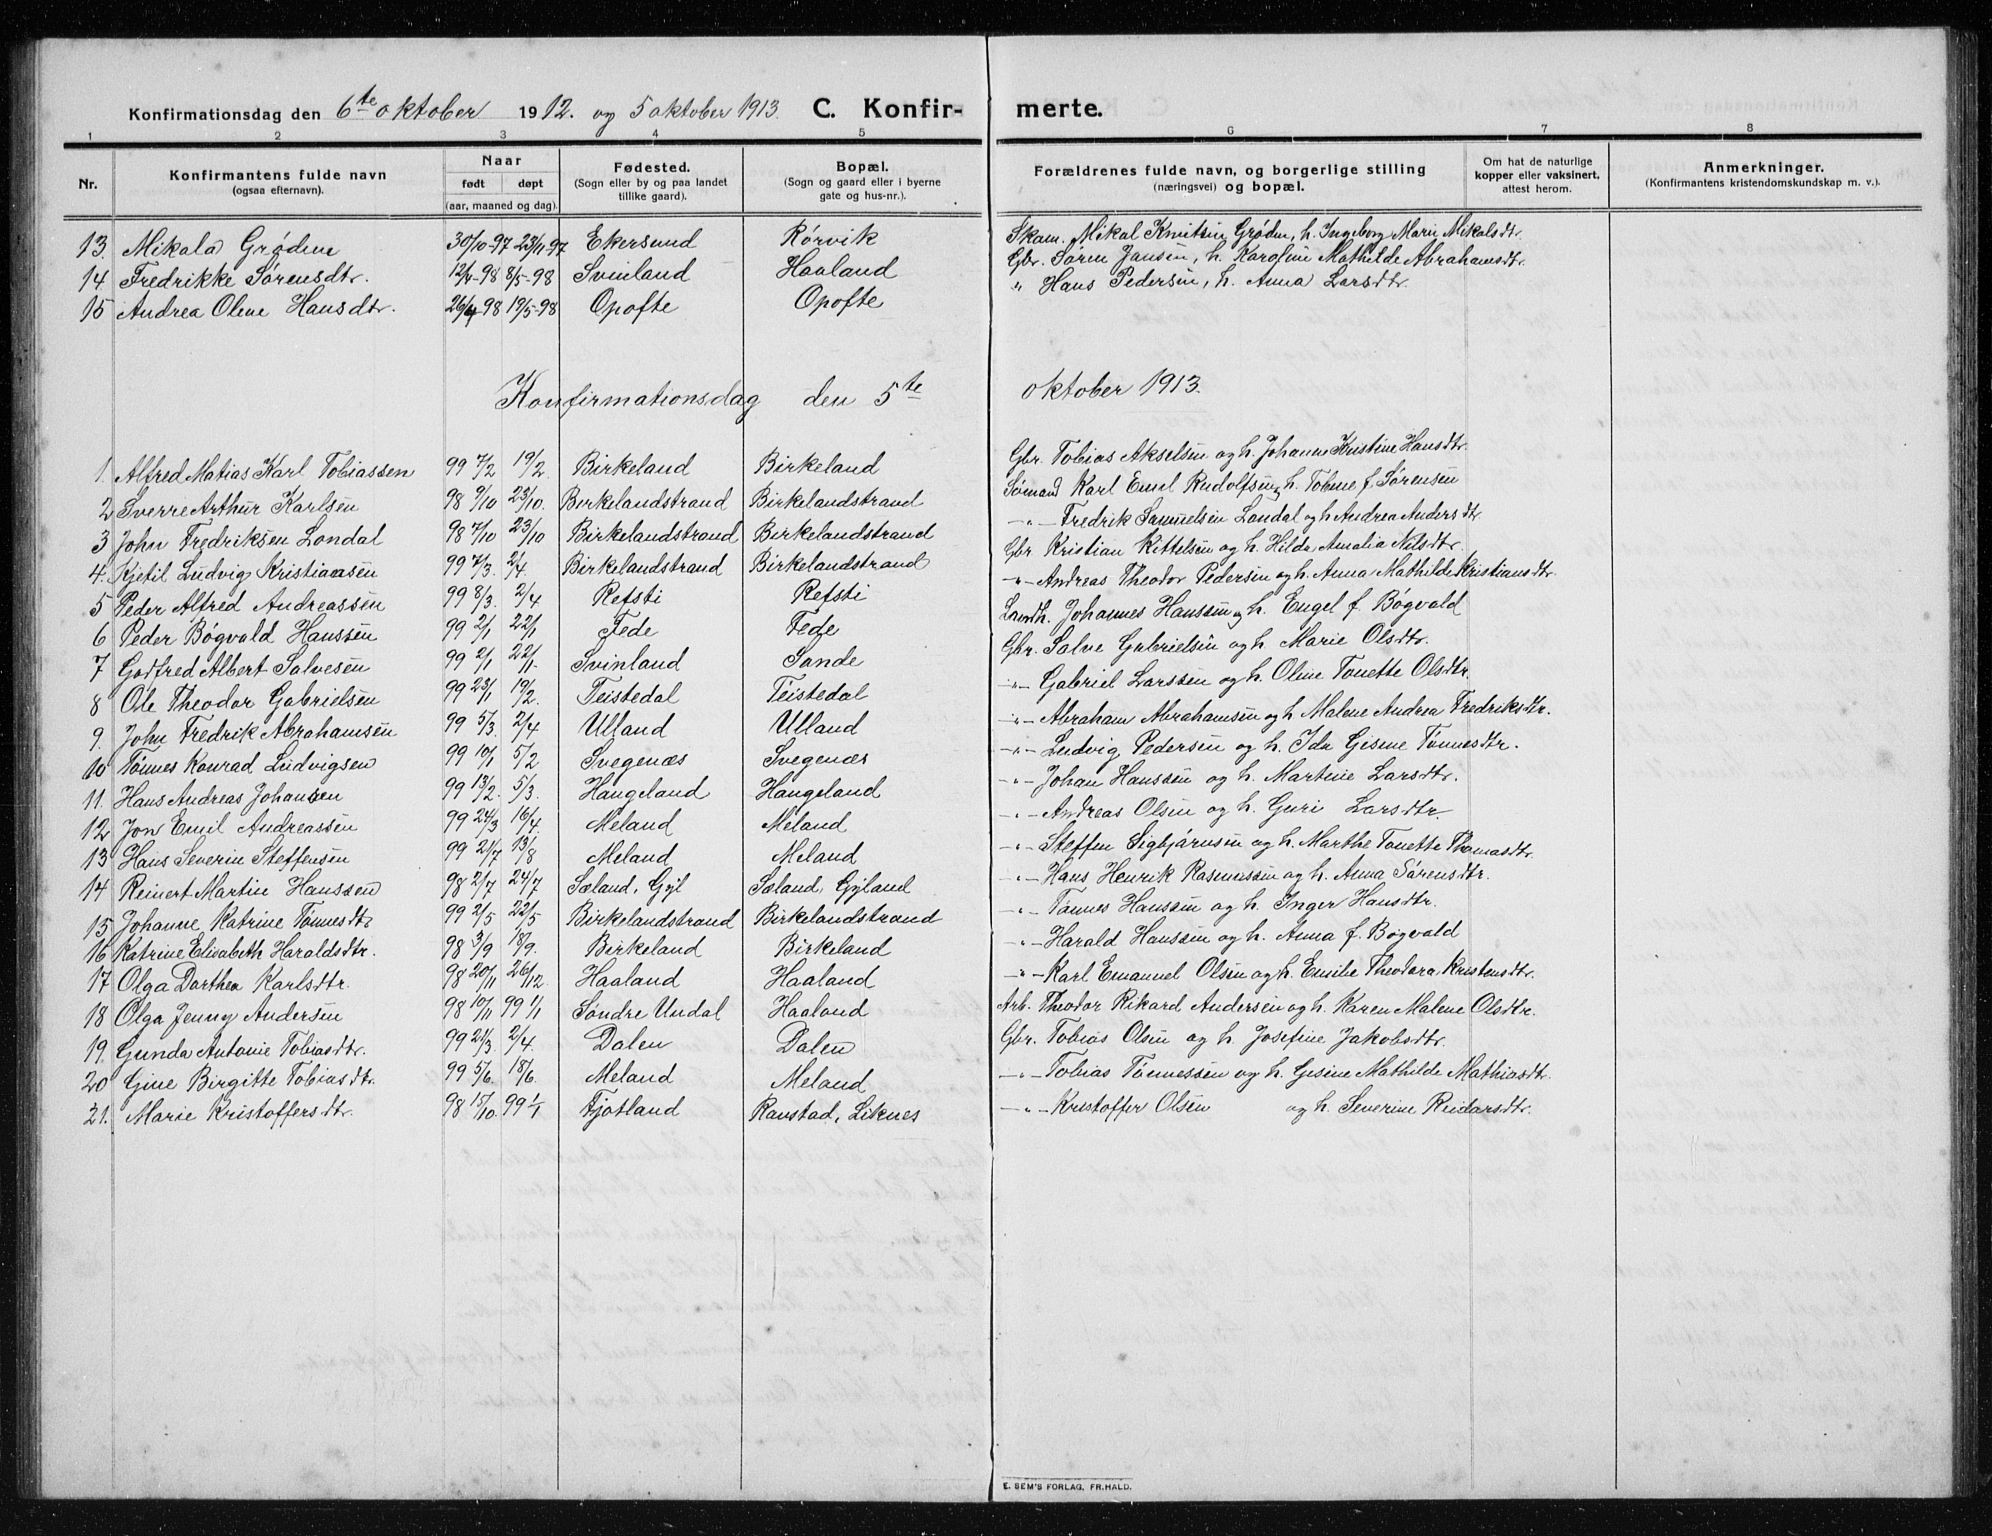 Konfirmationsdag den 6te oktober 1912. og 5 oktober 1913. C. Konfir- merte.
1 2 3 4 5 6 7 8
Nr. Konfirmantens fulde navn (ogsaa efternavn). Naar født døpt (aar, maaned og dag). Fødested. (Sogn eller by og paa landet tillike gaard). Bopæl. (Sogn og gaard eller i byerne gate og hus-nr.). Forældrenes fulde navn, og borgerlige stilling (næringsvei) og bopæl. Om hat de naturlige kopper eller vaksinert, attest herom. Anmerkninger. (Konfirmantens kristendomskundskap m. v.).
13. Mikala Grødem 30/10-97 23/11-97 Ekersund Rørvik Skom. Mikal Knutsen Grødem, h. Ingeborg Marie Mikalsdtr.
14 Fredrikke Sørensdtr. 12/4-98 8/5-98 Svinland Haaland Gbr. Søren Jansen, h. Karoline Mathilde Abrahamsdtr.
15 Andrea Oline Hansdtr. 26/4-98 19/5-98 Opofte Opofte " Hans Pedersen, h. Anna Larsdtr.
Konfirmationsdag den 5te oktober 1913.
1. Alfred Matias Karl Tobiassen 99 7/2 19/2. Birkeland Birkeland Gbr. Tobias Akselsen og h. Johanne Kristine Hansdtr.
2 Sverre Arthur Karlsen 98 9/10 23/10. Birkelandstrand Birkelandstrand Sømand Karl Emil Rudolfsen og h. Tobine f. Sørensen
3 John Fredriksen Londal 98 7/10 23/10 Birkelandstrand Birkelandstrand -"- Fredrik Samuelsen Londal og h. Andrea Andersdtr.
4. Kjetil Ludvig Kristiansen 99 7/3. 2/4 Birkelandstrand Birkelandstrand Gbr. Kristian Kittelsen og h. Hilda Amalia Nilsdtr.
5 Peder Alfred Andreassen 99 8/3. 2/4 Refsti Refsti -"- Andreas Theodor Pedersen og h. Anna Mathilde Kristiansdtr.
6 Peder Bøgvald Hanssen 99 2/1 22/1 Fede Fede Landh. Johannes Hanssen og h. Engel f. Bøgvald
7 Godfred Albert Salvesen 99 2/1 22/1. Svinland Sande Gbr. Salve Gabrielsen og h. Marie Olsdtr.
8 Ole Theodor Gabrielsen 99 23/1 19/2. Teistedal Teistedal -"- Gabriel Larssen og h. Oline Tonette Olsdtr.
9. John Fredrik Abrahamsen 99 5/3. 2/4 Ulland Ulland -"- Abraham Abrahamsen og h. Malene Andrea Fredriksdtr.
10 Tønnes Konrad Ludvigsen 99 10/1 5/2 Svegenæs Svegenæs -"- Ludvig Pedersen og h. Ida Gisine Tønnesdtr.
11. Hans Andreas Johansen 99 13/2. 5/3. Haugeland Haugeland -"- Johan Hanssen og h. Martine Larsdtr.
12 Jon Emil Andreassen 99 24/3 16/4. Meland Meland -"- Andreas Olsen og h. Guri Larsdtr.
13 Hans Severin Steffensen 99 21/7 13/8 Meland Meland -"- Steffen Sigbjørnsen og h. Marthe Tonette Thomasdtr.
14 Reinert Martin Hanssen 98 2/7 24/7 Sæland, Gyl Sæland, Gyland -"- Hans Henrik Rasmussen og h. Anna Sørensdtr.
15. Johanne Katrine Tønnesdtr. 99 2/5 22/5 Birkelandstrand Birkelandstrand -"- Tønnes Hanssen og h. Inger Hansdtr.
16 Katrine Elisabeth Haraldsdtr. 98 3/9 18/9. Birkeland Birkeland -"- Harald Hanssen og h. Anna f. Bøgvald
17 Olga Dorthea Karlsdtr. 98 20/11 26/12. Haaland Haaland -"- Karl Emanuel Olsen og h. Emilie Theodora Kristensdtr.
18 Olga Jenny Andersen 98 10/11 99 1/1 Søndre Undal Haaland Arb. Theodor Rikard Andersen og h. Karen Malene Olsdtr.
19. Gunda Antonie Tobiasdtr. 99 21/3. 2/4. Dalen Dalen Gbr. Tobias Olsen og h. Josefine Jakobsdtr.
20 Gine Birgitte Tobiasdtr. 99 5/6. 18/6 Meland Meland -"- Tobias Tønnessen og h. Gisine Mathilde Mathiasdtr.
21. Marie Kristoffersdtr. 98 15/10 99 1/1 Fjotland Ranstad, Liknes -"- Kristoffer Olsen og h. Severine Reidarsdtr.
E. SEM'S FORLAG, FR.HALD.